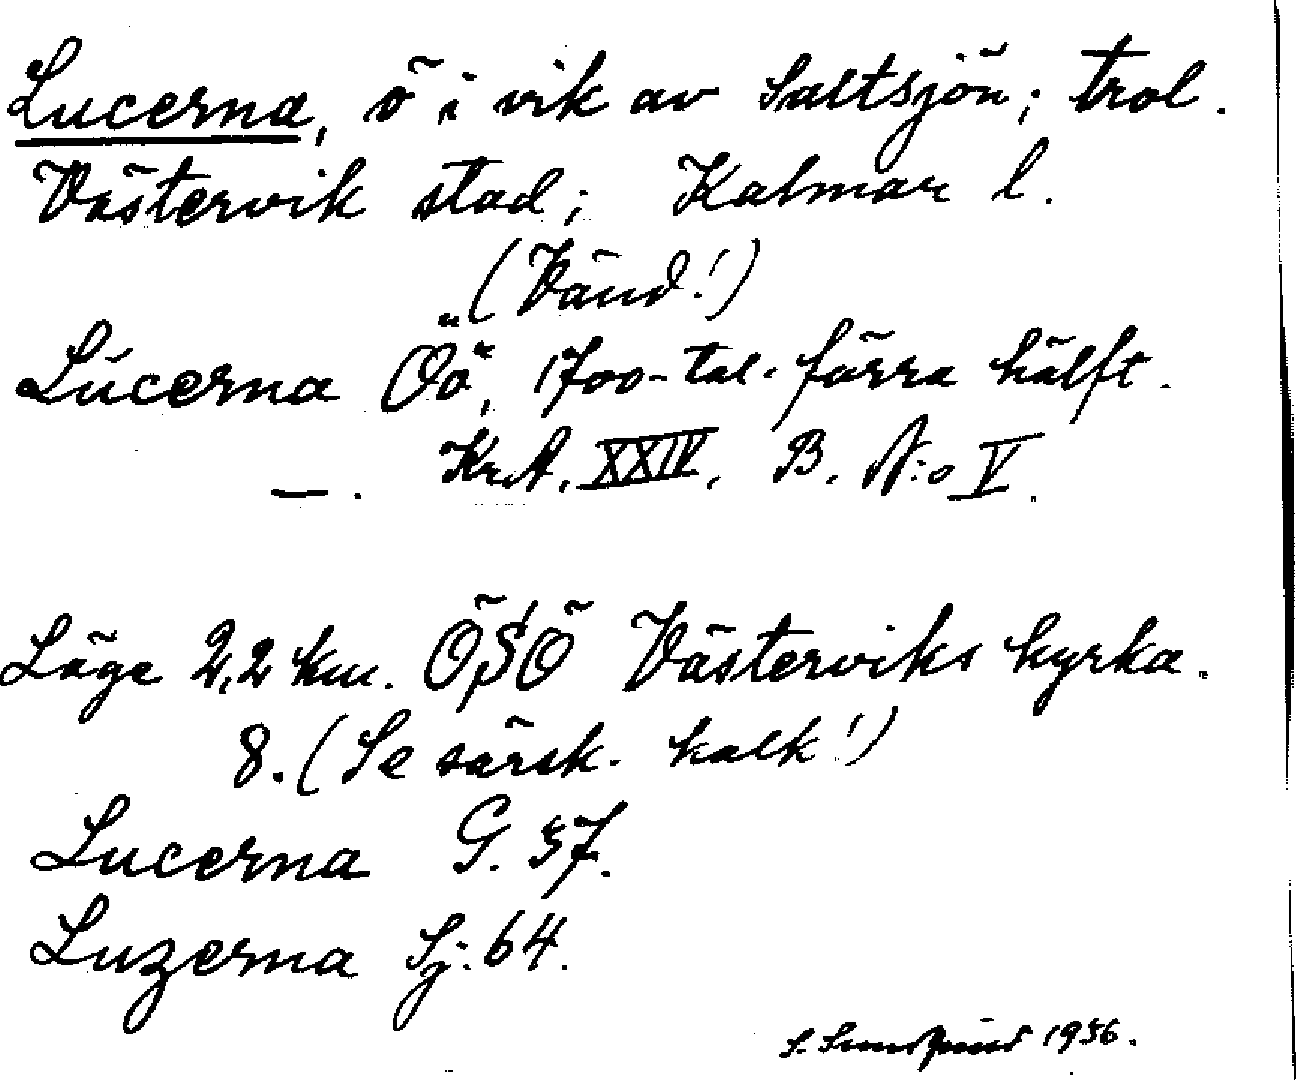 Lucerna, ö i vik av Saltsjön; trol.
Västervik stad; Kalmar l.
(Vänd!)
Lucerna Öö, 1700-tal. förra hälft.
—. KrA. XXIV. B. N:o V.
Läge 2,2 km. ÖSÖ Västerviks kyrka.
8. (Se särsk. kalk!)
Lucerna G. 57.
Luzerna Sj. 64.
S. 1956.